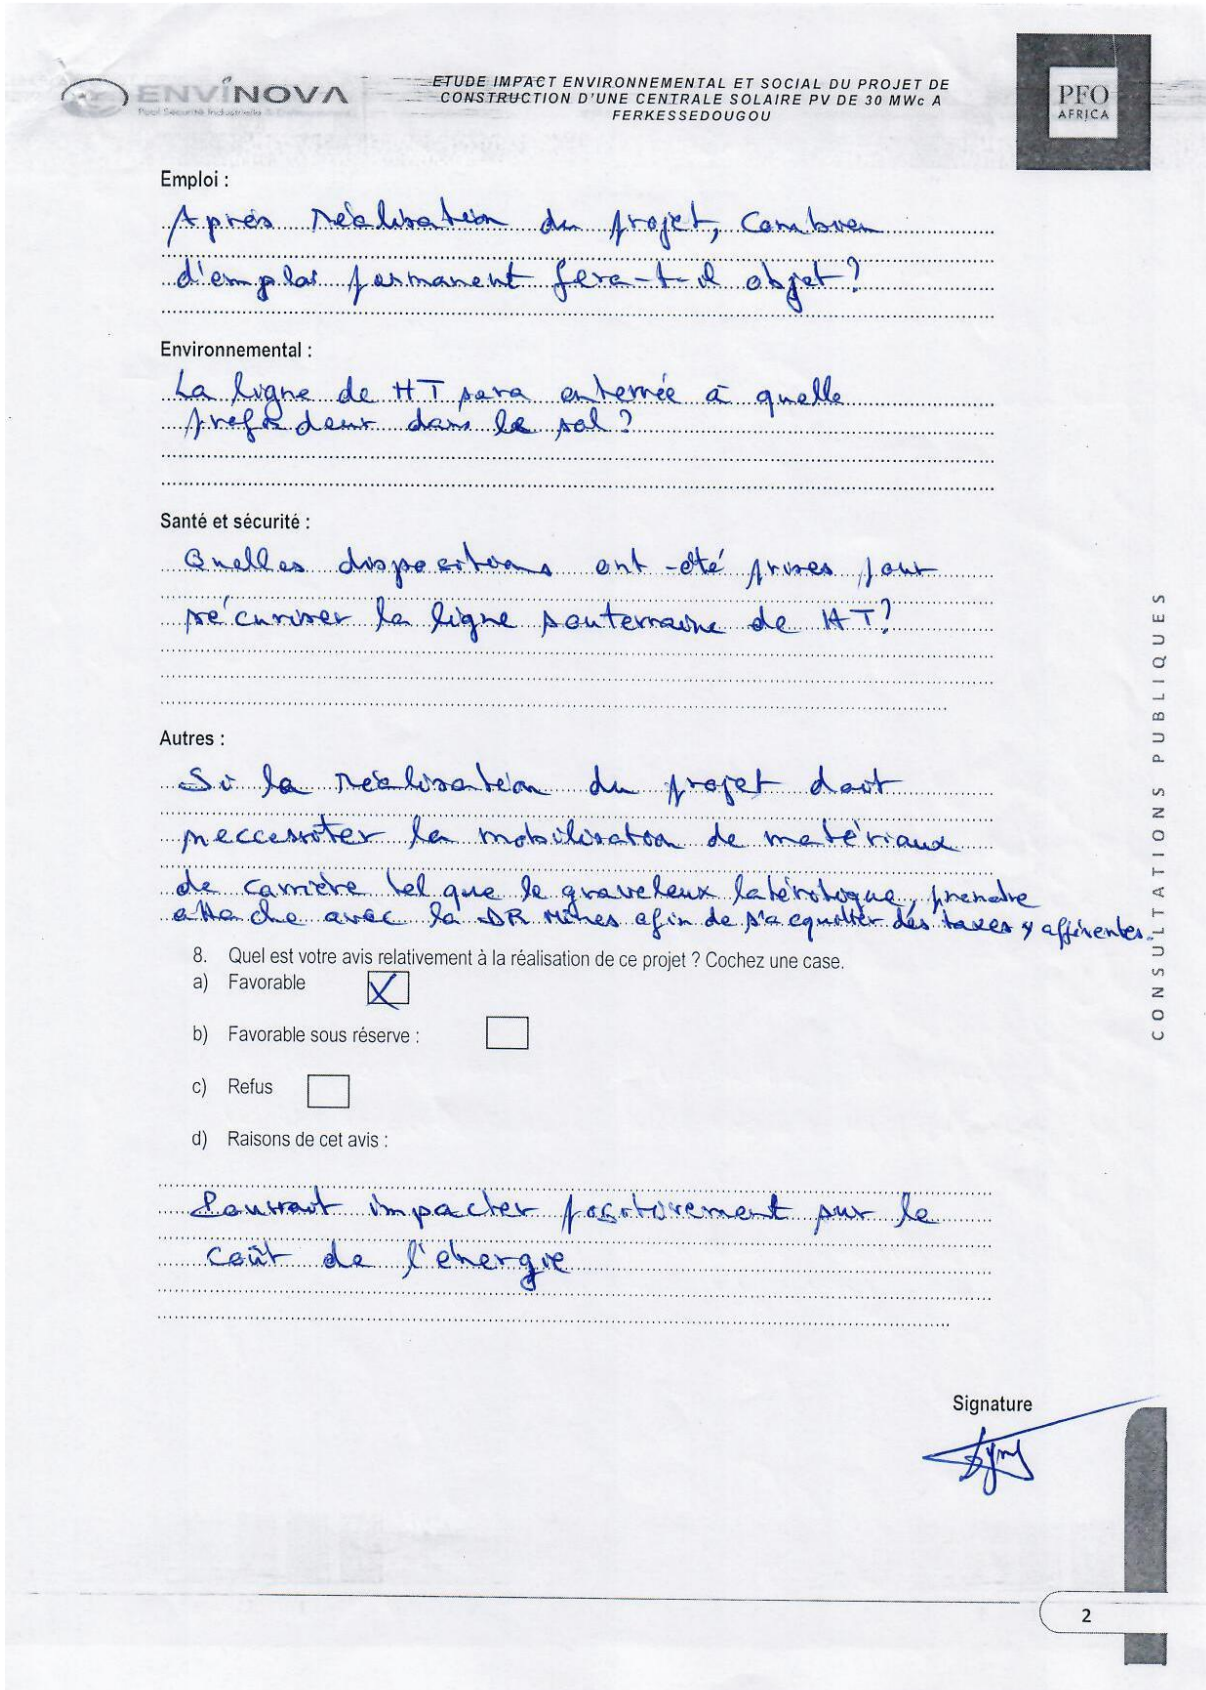 ENVINOVA
ETUDE IMPACT ENVIRONNEMENTAL ET SOCIAL DU PROJET DE
CONSTRUCTION D'UNE CENTRALE SOLAIRE PV DE 30 MWc A
FERKESSEDOUGOU
PFO
AFRICA
Emploi :
Après réalisation du projet, combien
d'emploi permanent fera-t-il objet ?
Environnemental :
La ligne de HT sera enterrée à quelle
profondeur dans le sol ?
Santé et sécurité :
Quelles dispositions ont été prises pour
sécuriser la ligne souterraine de HT ?
Autres :
Si la réalisation du projet doit
neccessiter la mobilisation de matériaux
de carrière tel que le graveleux latéritique, prendre
attache avec la DR Mines afin de s'acquitter des taxes y afférentes.
8. Quel est votre avis relativement à la réalisation de ce projet ? Cochez une case.
a) Favorable X
b) Favorable sous réserve :
c) Refus
d) Raisons de cet avis :
Pourrait impacter positivement sur le
coût de l'énergie
Signature
CONSULTATIONS PUBLIQUES
2